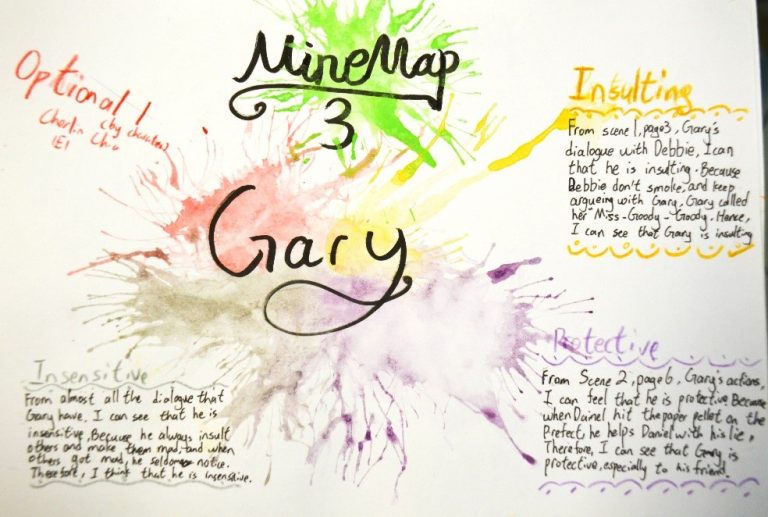 MineMap
3
Optional 1
(by character)
1E1
Gary
Insulting
From scene 1, page 3, Gary's
dialogue with Debbie, I can
that he is insulting. Because
Debbie don't smoke, and keep
argueing with Gary, Gary called
her "Miss-Goody-Goody. Hence,
I can see that Gary is insulting
Insensitive
From almost all the dialogue that
Gary have, I can see that he is
insensitive, Because he always insult
others and make them mad, and when
others got mad, he seldom notice.
Therefore, I think that he is insensitive.
Protective
From Scene 2, page 6, Gary's actions,
I can feel that he is protective. Because
when Dainel hit the paper pellet on the
Prefect, he helps Daniel with his lie,
Therefore, I can see that Gary is
protective, especially to his friend.